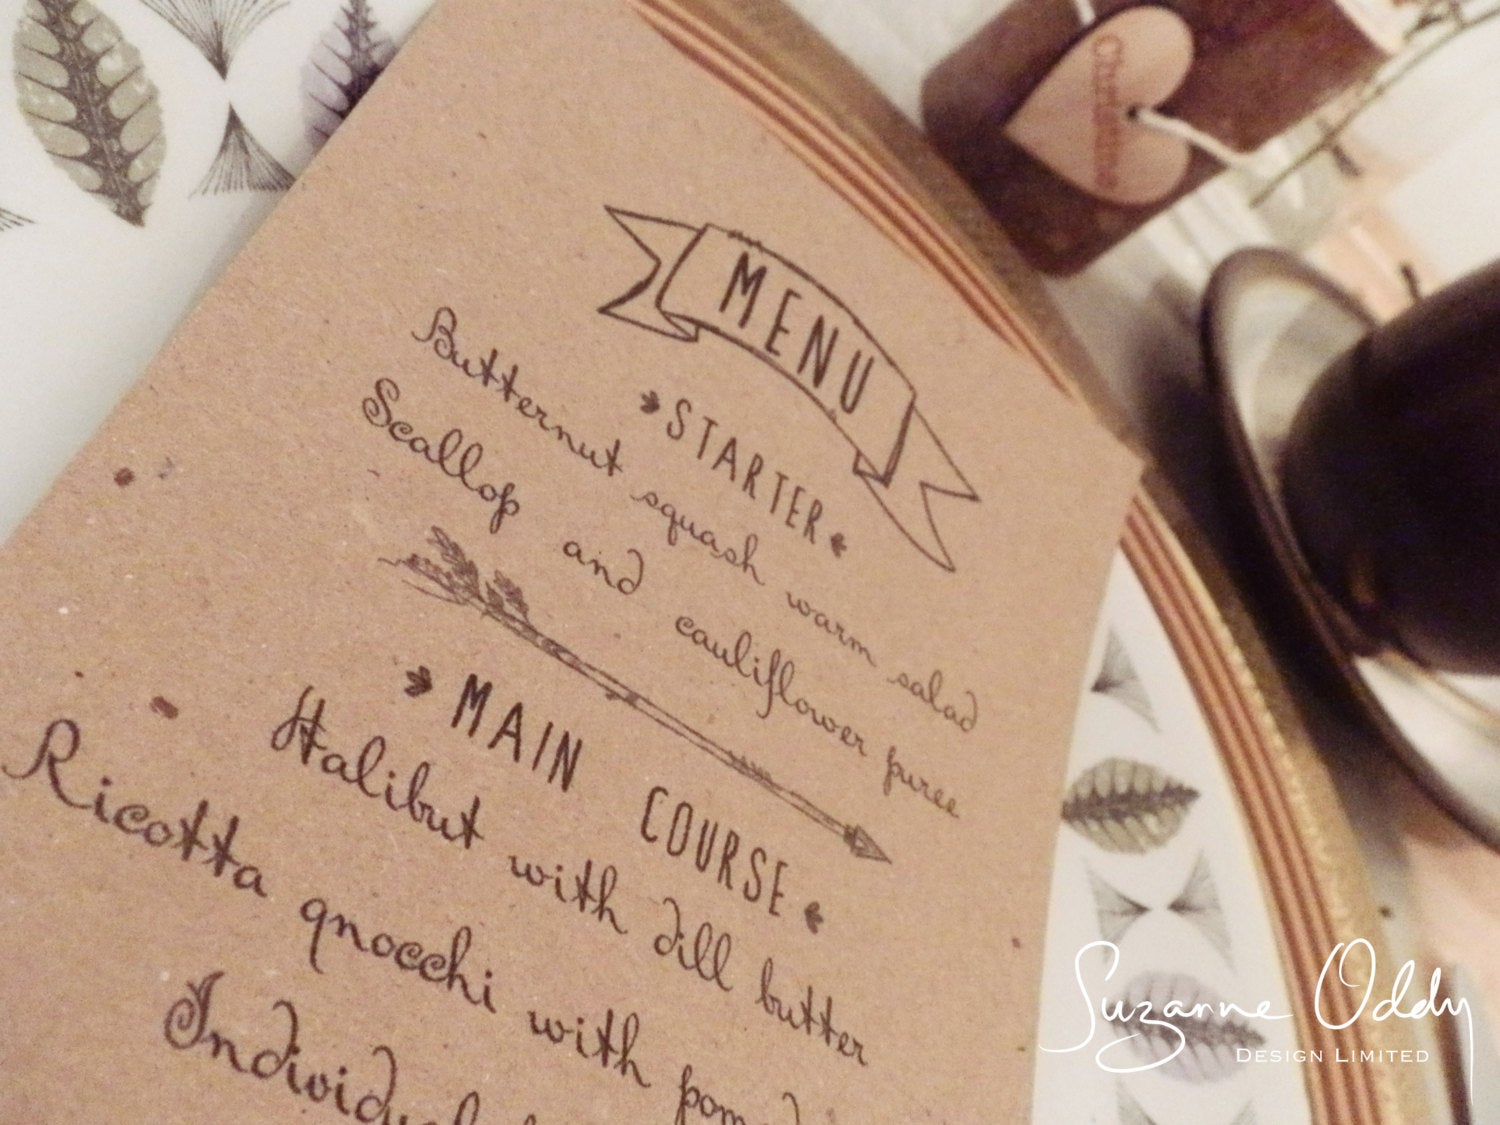 MENU
STARTER
Butternut squash warm salad
Scallop and cauliflower puree
MAIN COURSE
Halibut with dill butter
Ricotta gnocchi with
Suzanne Oddy
DESIGN LIMITED